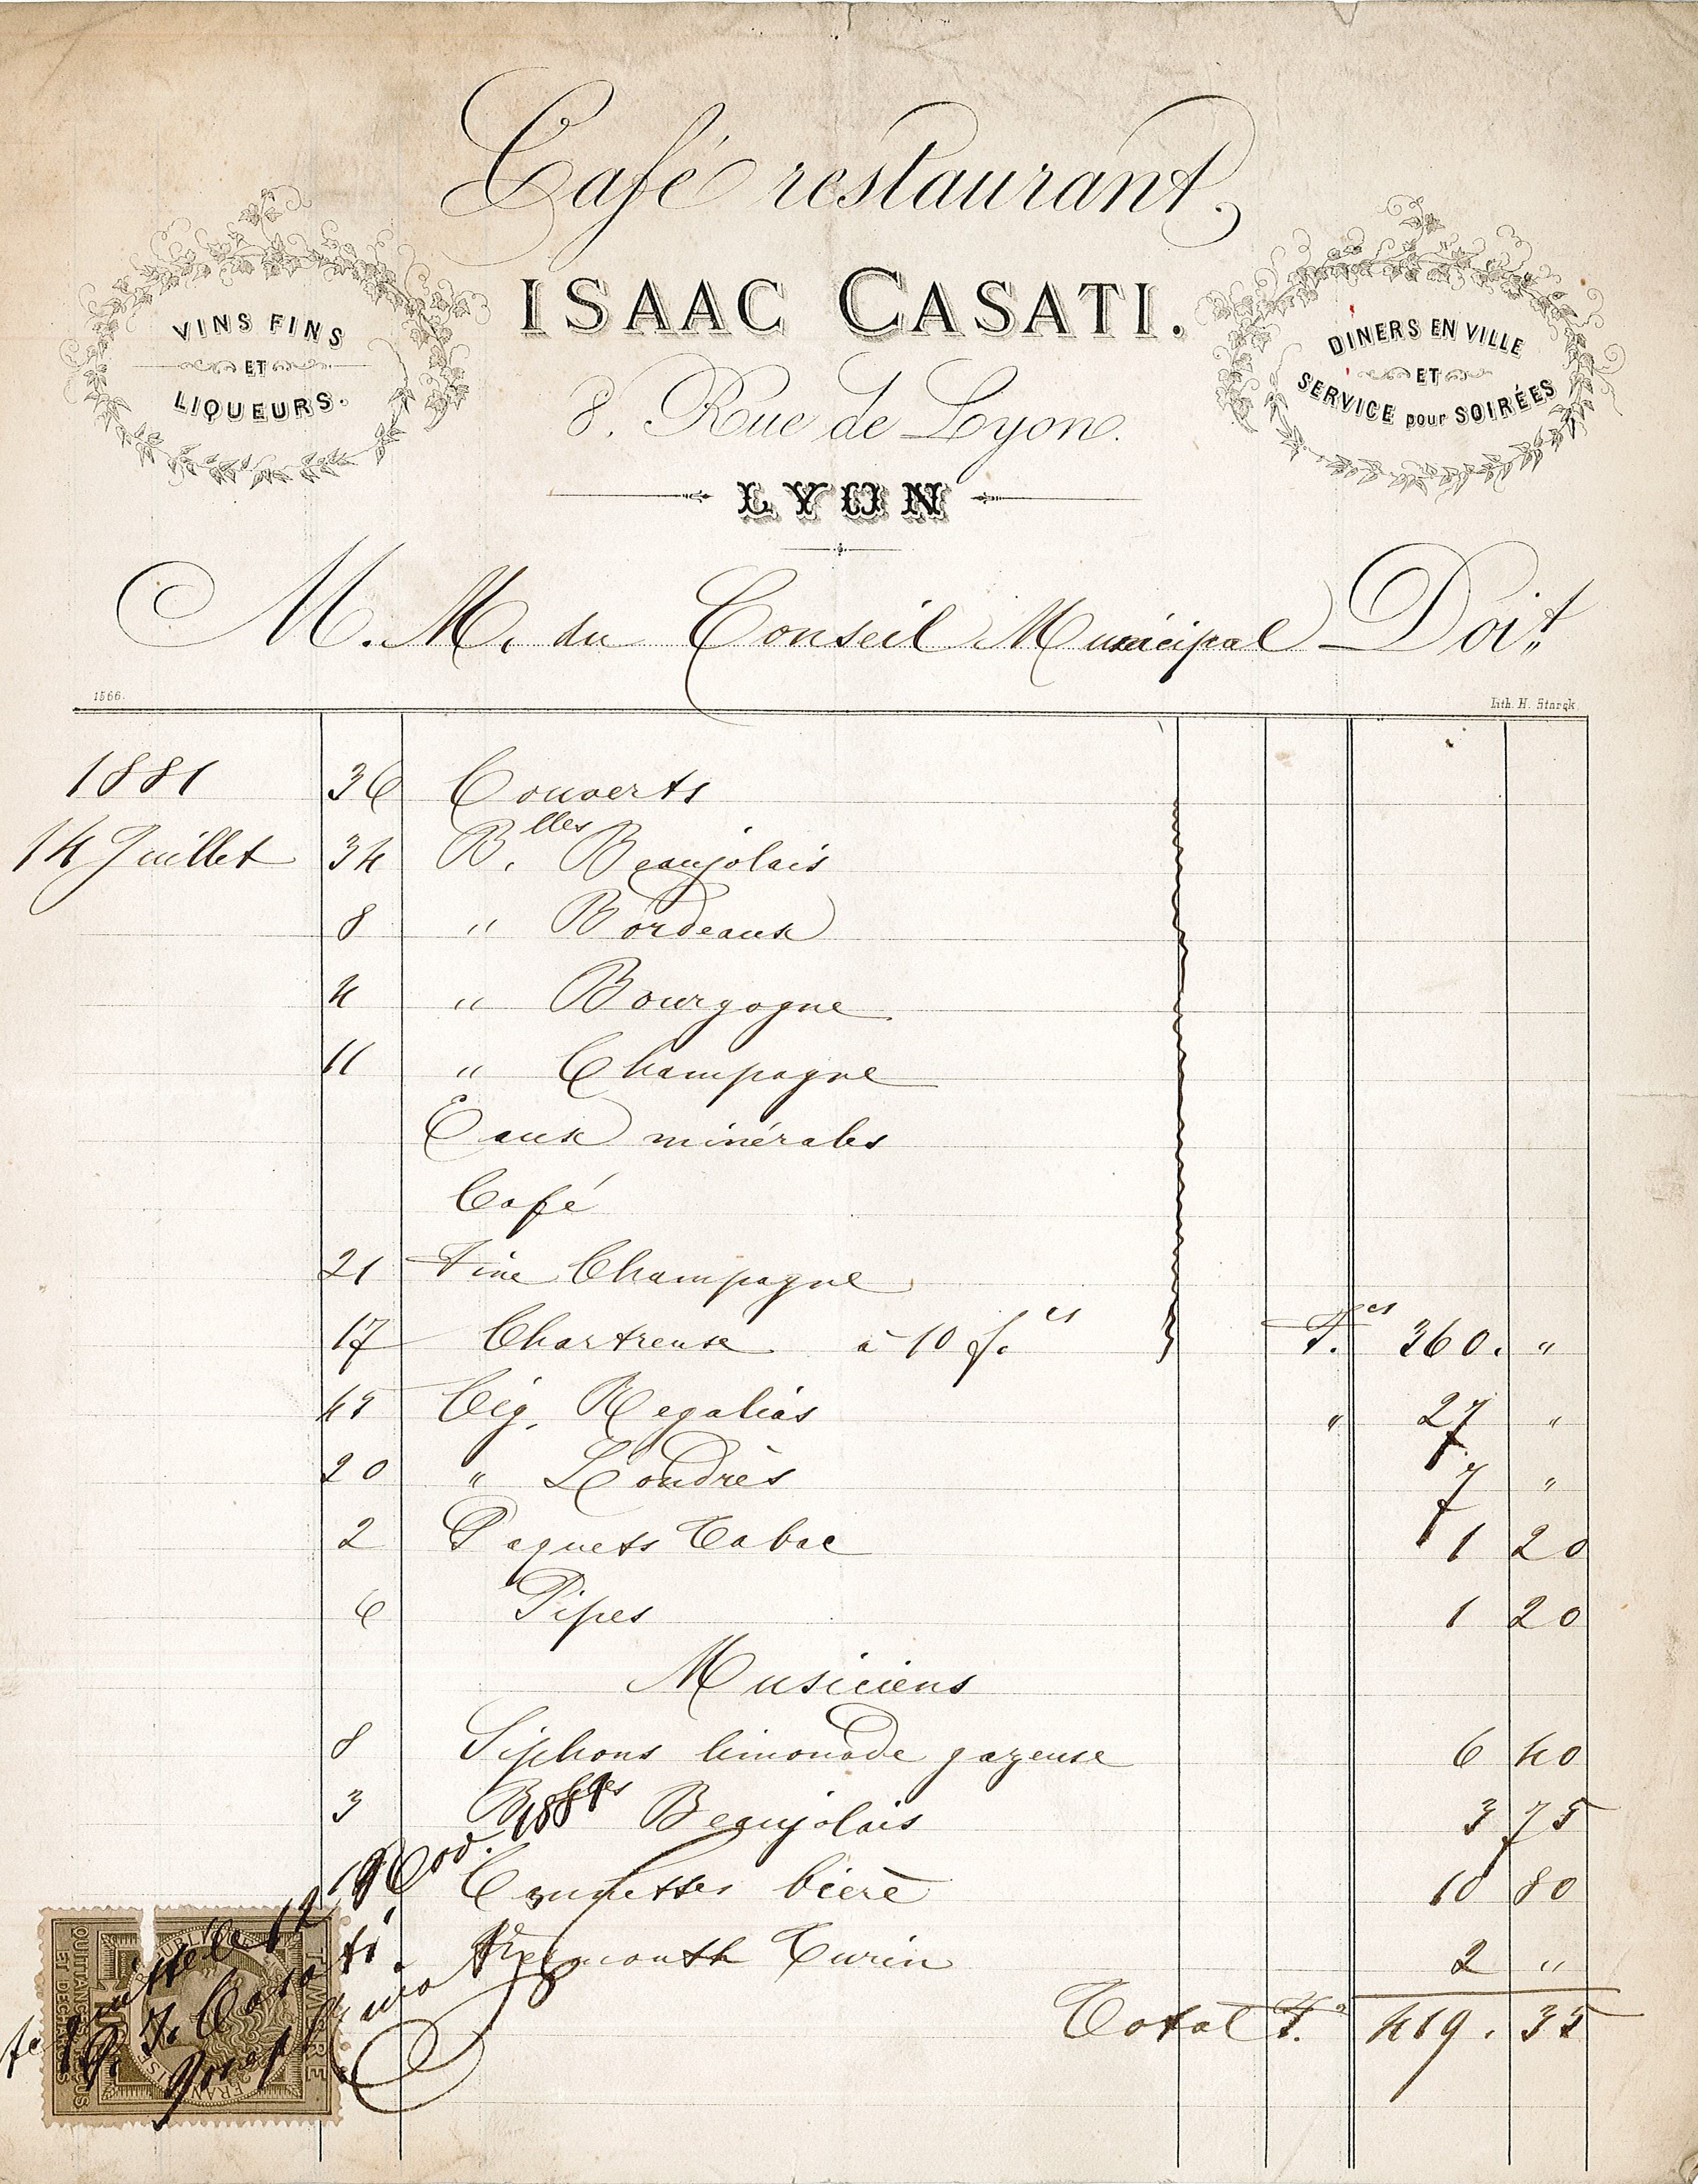 Café restaurant
ISAAC CASATI.
VINS FINS
ET
LIQUEURS.
DINERS EN VILLE
ET
SERVICE pour SOIRÉES
8. Rue de Lyon.
LYON
M. M. du Conseil Municipal Doit
1566. Lith. H. Starck
1881 36 Couverts
14 Juillet 34 B.lles Beaujolais
8 " Bordeaux
4 " Bourgogne
11 " Champagne
Eaux minérales
Café
21 Fine Champagne
17 Chartreuse à 10 f.cs F.cs 360. "
45 Cig. Regalias " 27 "
20 " Londrès 7 "
2 Paquets Tabac 1 20
6 Pipes 1 20
Musiciens
8 Siphons limonade gazeuse 6 40
3 Blles Beaujolais 3 75
Cannettes bière 10 80
Vermouth Turin 2 "
Total F. 419. 35
12 1881
I. Casati
Joseph
TIMBRE
QUITTANCES REÇUS
ET DECHARGES
REPUBLIQUE
FRANÇAISE